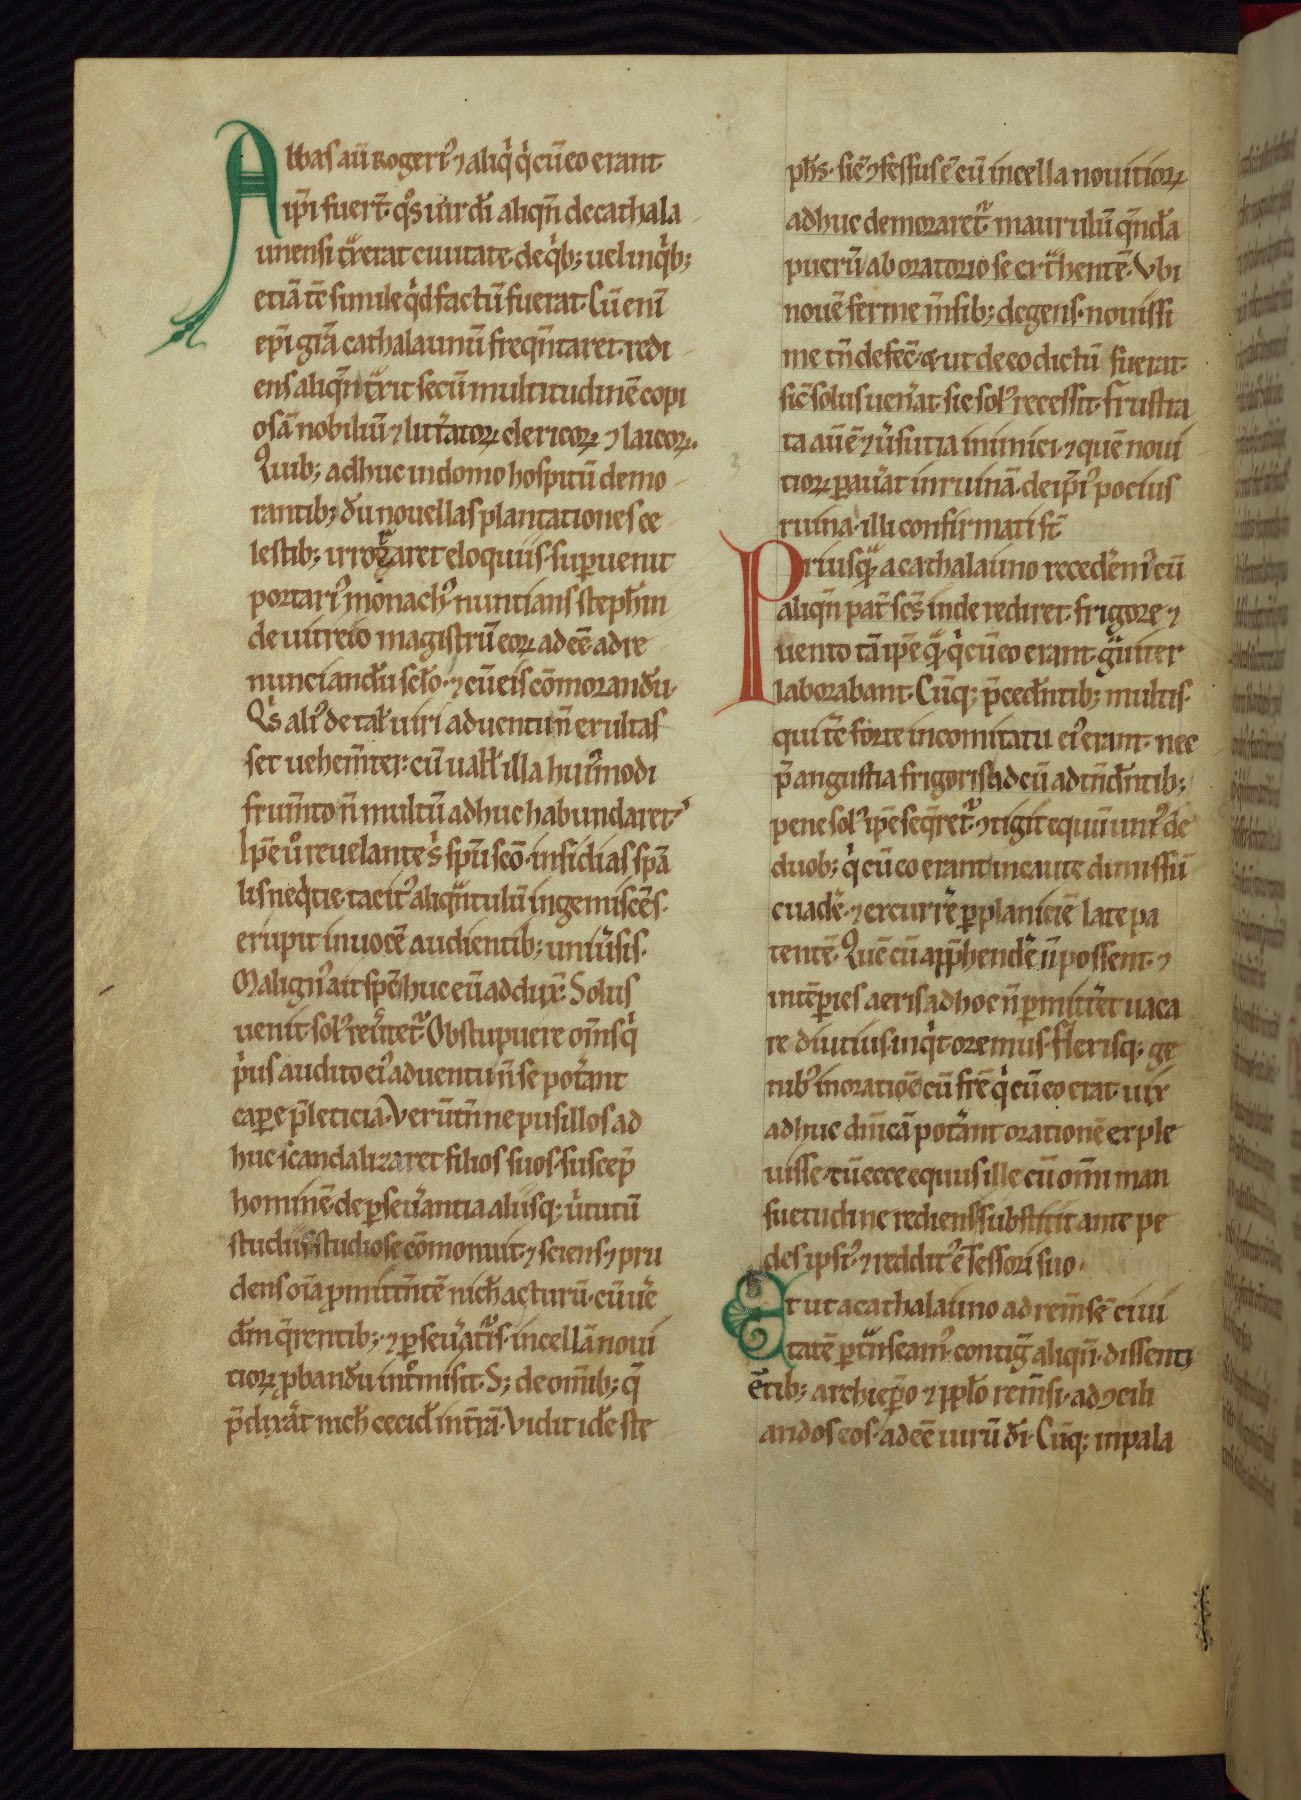 Abbas aū Rogeri᷒ ⁊ aliq̇ q̇ cū eo erant
ip̄i fuer̄t. q̊s uir dī aliqn̄ de cathala
unensi tᷓxerat ciuitate. de qͥb; uel in qͥb;
etiā tē simile qͥd factū fuerat. Cū enī
ep̄i gr̄a cathalaunū freqn̄taret. redi
ens aliqn̄ tᷓxit secū multitudinē copi
osā nobiliū ⁊ litt̄atoꝝ clericoꝝ ⁊ laicoꝝ.
Quib; adhuc in domo hospitū demo
rantib; dū nouellas plantationes ce
lestib; irroraret eloquiis. suꝑuenit
portari᷒ monach᷒ nuntians steph̄m
de uitreio magistrū eoꝝ adeē. ad re
nunciandū scl̄o. ⁊ cū eis cōmorandū.
Qͥs ali᷒ de tal̄ uiri aduentu n̄ exultas
set uehem̄ter: cū uall̄ illa hui᷒modi
frum̄to n̄ multū adhuc habundaret?
Ip̄e ů reuelante sͥ sp̄u scō. insidias sp̄a
lis neqͥtie. tacit᷒ aliqᷓntulū ingemiscēs.
erupit in uocē audientib; uniūsis.
Malign᷒ ait sp̄c huc eū addux̄. Solus
uenit sol᷒ reūtet᷑. Obstupuere om̄s q̇
pͥus audito ei᷒ aduentu n̄ se pot̄ant
caꝑe p̄ leticia. Verūtn̄ ne pusillos ad
huc scandalizaret filios suos. suscep̄
hominē. de ꝑseūantia aliisq; ūtutū
studiis studiose cōmonuit. ⁊ sciens ⁊ pru
dens oīa ꝓmitt̄ntē nich̄ acturū. cū uē
dīn q̄rentib; ⁊ ꝑseūat᷑is. in cellā noui
tioꝝ ꝓbandū int̊misit. S; de om̄ib; q̄
p̄dixāt nich̄ cecid̄ in t̄rā. Vidit id̄e ste
ph̄s. sic̄ ⁊ fessus ē cū in cella nouitioꝝ
adhuc demoraret᷑ maurulū qn̄dā
puerū ab oratorio se extᷓhentē. Vbi
nouē ferme m̄sib; degens. nouissi
me tn̄ defec̄. & ut de eo dictū fuerat.
sic̄ solus uen̄at sic sol᷒ recessit. Frustra
ta aū ē ⁊ ūsutia inimici. ⁊ quē noui
tioꝝ ꝑaūat in ruinā. de ip̄i᷒ pocius
ruina. illi confirmati sт̄.
Priusqᷓ a cathalauno recedem᷒. cū
aliqn̄ pat̄ scs̄ inde rediret. frigore ⁊
uento tā ip̄e qᷓ q̇ cū eo erant gᷓuiter
laborabant. Cūq; p̄cedn̄tib; multis.
qui tē forte in comitatu ei᷒ erant. nec
p̄ angustia frigoris ad eū adtn̄dn̄tib;
pene sol᷒ ip̄e seq̄ret᷑. ⁊tigit equū uni᷒ de
duob; q̇ cū eo erant incaute dimissū
euadē. ⁊ excurr̄e ꝑ planiciē late pa
tentē. Quē cū appͬhendē n̄ possent. ⁊
int̄ꝑies aeris ad hoc n̄ ꝑmitt̄et uaca
re diutius. inqͥt oremus. Flexisq; ge
nib᷒ in oratiōe cū fr̄e q̇ cū eo erat. uix
adhuc dn̄icā pot̄ant orationē exple
uisse. tū ecce equus ille cū om̄i man
suetudine rediens substitit ante pe
des ipsi᷒. ⁊ reddit᷒ ē sessori suo.
Et ut a cathalauno ad rem̄sē ciui
tatē ꝑtᷓnseam᷒. contig̊ aliqn̄. dissenti
ētib; archiep̄o ⁊ ppl̄o rem̄si. ad ꝯcili
andos eos. adeē uirū dī. Cūq; in pala